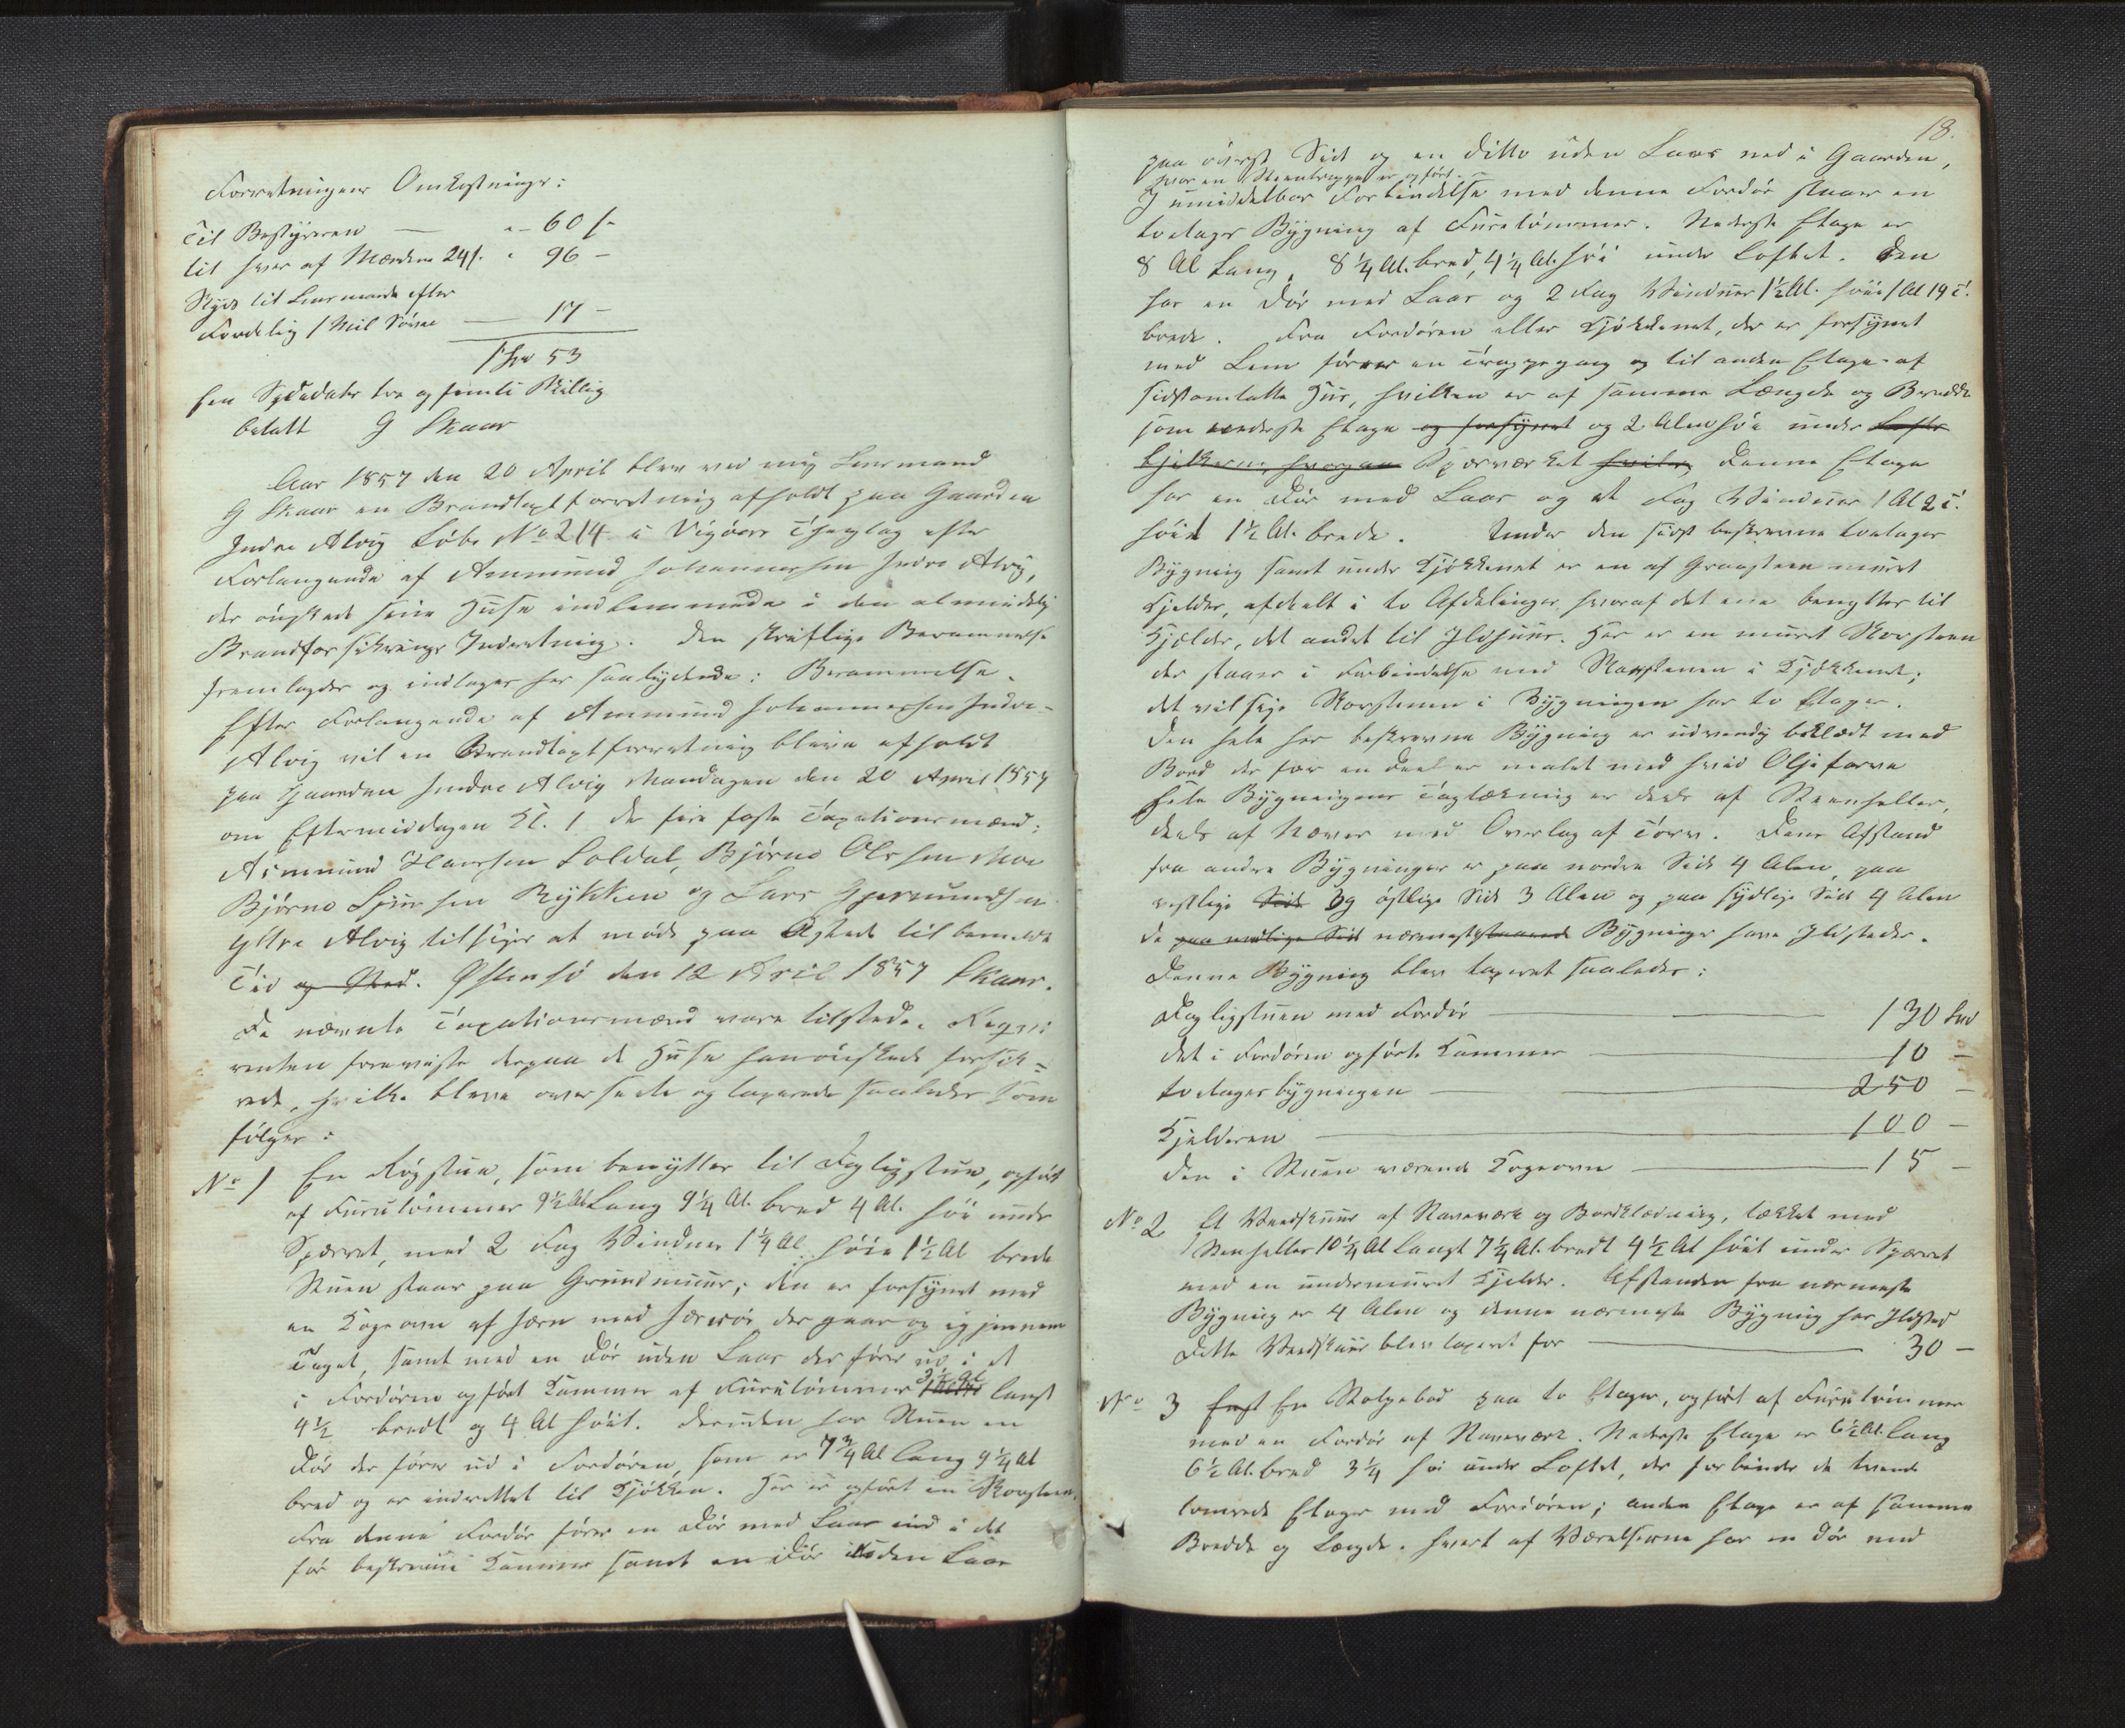 Forretningens Omkostninger:
Til Bestyreren — " – 60 s
til hver af Mændene 24 s. " 96 –
Skyds til Lensmanden efter
Fordeling 1 Mil Søvei — 17 –
1 Spd 53
En Speciedaler tre og femti Skilling
betalt G Skaar
Aar 1857 den 20 April blev ved mig Lensmand
G Skaar en Brandtaxtforretning afholdt paa Gaarden
Indre Alvig Løbe No 214 i Vigørs Thinglag efter
Forlangende af Ammund Johannessen Indre Alvig,
der ønskede sine Huse indlemmede i den almindelig
Brandforsikrings Indretning. Den skriftlige Berammelse
fremlagdes og indtages her saalydende: Berammelse.
Efter Forlangende af Ammund Johannessen Indre-
Alvig vil en Brandtaxtforretning blive afholdt
paa Gaarden Indre Alvig Mandagen den 20 April 1857
om Eftermiddagen Kl. 1 de fire faste Taxationsmænd:
Asmund Hansen Soldal, Bjørne Olsen Moe
Bjørno Sjursen Rykken og Lars Gjermundsen
Yttre Alvig tilsiges at møde paa Aastedet til bemeldte
Tid og Sted. Østensø den 12 April 1857 Skaar.
De nævnte Taxationsmænd vare tilstede. Reqvi
renten foreviste derpaa de Huse han ønskede forsik=
rede, hvilke bleve overseede og taxerede saaledes som
følger:
No 1 En Røgstue, som benyttes til Dagligstue, opført
af Furutømmer 9½ Al Lang 9¼ Al. bred 4 Al. høi under
Sperret, med 2 Fag Vinduer 1¼ Al. høie 1½ Al brede
Stuen staar paa Grundmuur; den er forsynet med
en Kogeovn af Jern med Jernrør der gaar op igjennem
Taget, samt med en Dør uden Laas der fører ud i et
3½ Al
i Fordøren opført Kammer af Furutømmer langt
4½ bredt og 4 Al høit. Desuden har Stuen en
Dør der fører ud i Fordøren, som er 7¾ Al lang 9¼ Al
bred og er indrettet til Kjøkken. Her er opført en Skorsteen.
Fra denne Fordør fører en Dør med Laas ind i det
før beskrevne Kammer samt en Dør uden Laas
18.
paa øverst Side og en ditto uden Laas ned i Gaarden,
hvor en Steentrappe er opført.
I umiddelbar Forbindelse med denne Fordør staar en
toetages Bygning af Furutømmer. Nederste Etage er
8 Al Lang, 8¼ Al. bred, 4¼ Al. høi under Loftet. Den
har en Dør med Laas og 2 Fag Vinduer 1½ Al. høie 1 Al 19 T.
brede. Fra Fordøren eller Kjøkkenet, der er forsynet
med Lem fører en Trappegang op til anden Etage af
sidstomtalte Huus, hvilken er af samme Længde og Bredde
som nederste Etage og forsynet og 2 Alen høi under Lofts
bjelkerne, hvorpaa Sperværket hviler, denne Etage
har en Dør med Laas og et Fag Vinduer 1 Al 2 T.
høit 1½ Al. brede. Under den sidst beskrevne toetages
Bygning samt under Kjøkkenet er en af Graasteen muret
Kjelder, afdeelt i to Afdelinger, hvoraf det ene benyttes til
Kjelder, det andet til Ildhuus. Her er en muret Skorsteen
der staar i Forbindelse med Skorstenen i Kjøkkenet;
det vil sige Skorstenen i Bygningen har to Etager.
Den hele her beskrevne Bygning er udvendig beklædt med
Bord der for en Deel er malet med hvid Oljefarve
Hele Bygningens Tagtækning er deels af Steenheller,
deels af Næver med Overlag af Tørv. Dens Afstand
fra andre Bygninger er paa nordre Side 4 Alen, paa
vestlige Side og østlige Side 3 Alen og paa sydlige Side 4 Alen
de paa nordlige Side nærmest staaende Bygninger have Ildsteder.
Denne Bygning blev taxeret saaledes:
Dagligstuen med Fordør — 130 Spd
det i Fordøren opførte Kammer — 10 –
toetagesbygningen — 250 –
Kjelderen — 100 –
den i Stuen værende Kogeovn — 15 –
No 2 Et Vedskuur af Staveværk og Bordklædning, tækket med
Stenheller 10¼ Al Langt 7¼ Al. bredt 4½ Al høit under Sperret
med en undermuret Kjelder. Afstanden fra nærmeste
Bygning er 4 Alen og denne nærmeste Bygning har Ildsted
Dette Vedskuur blev taxeret for — 30 –
No 3 En Stolpebod paa to Etager, opført af Furutømmer
med en Fordør af Staveværk. Nederste Etage er 6½ Al. lang
6½ Al. bred 3¼ høi under Loftet, der forbinder de tvende
tømrede Etager med Fordøren; anden Etage er af samme
Bredde og Længde. Hvert af Værelserne har en Dør med